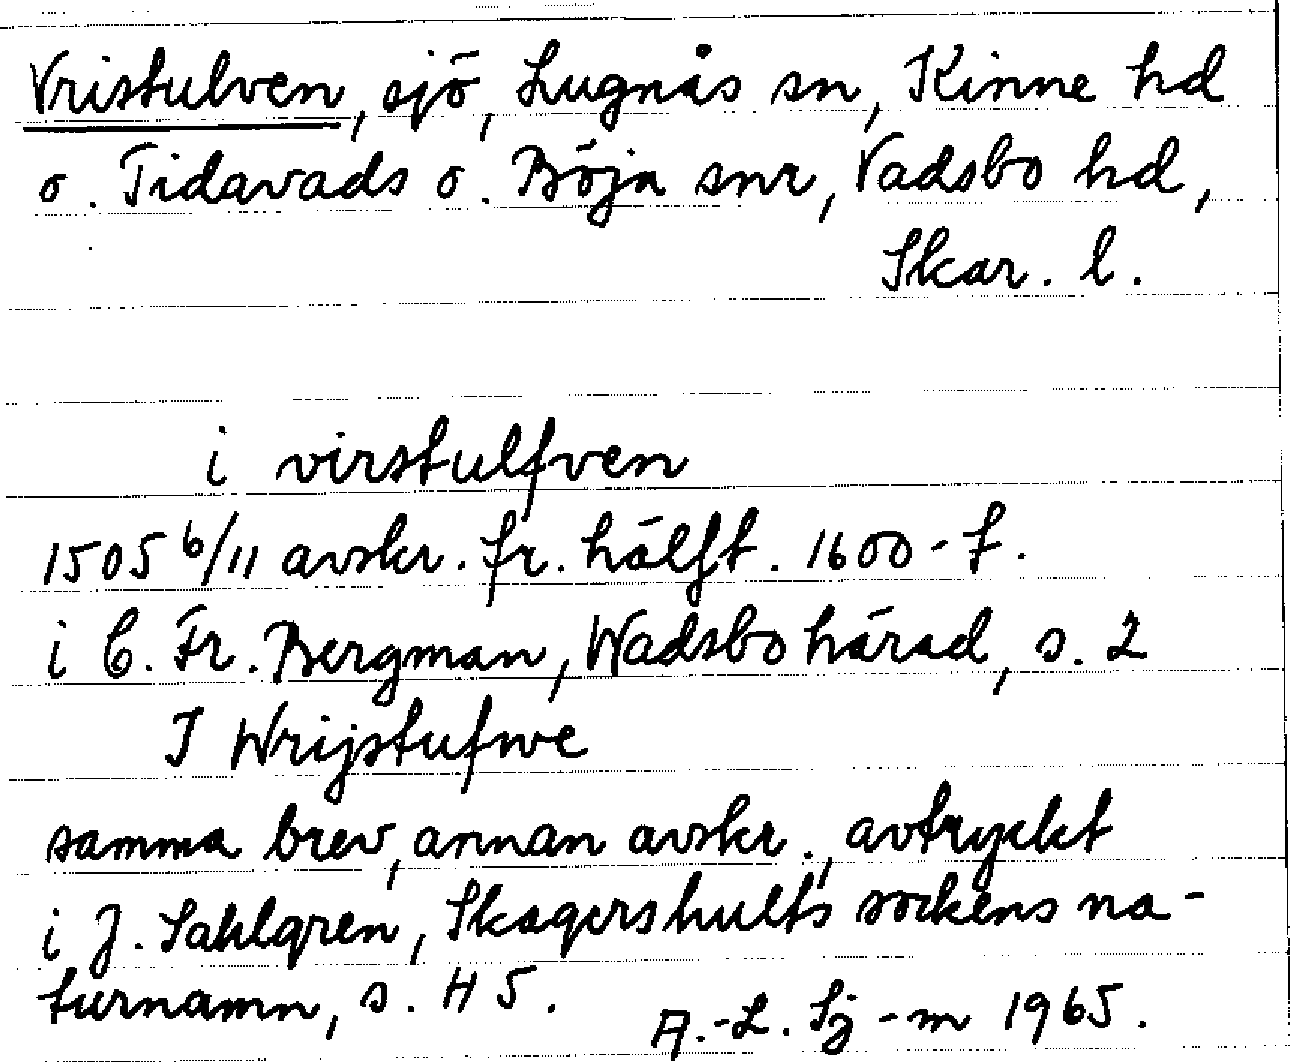 Vristulven, sjö, Lugnås sn, Kinne hd
o. Tidavads o. Böja snr, Vadsbo hd,
Skar. l.
i virstulfven
1505 6/11 avskr. fr. hälft. 1600-t.
i C. Fr. Bergman, Wadsbo härad, s. 2
I Wrijstufwe
samma brev, annan avskr., avtryckt
i J. Sahlgren, Skagershults sockens na-
turnamn, s. 45.
A.-L. Sj-m 1965.